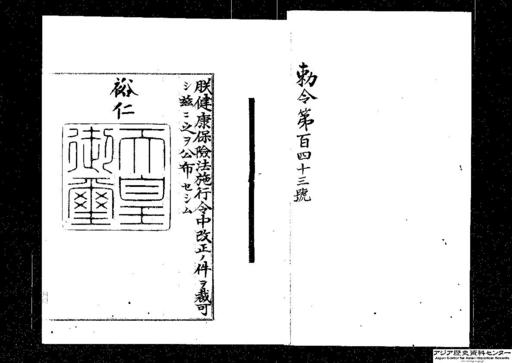 勅令第百四十三號
朕健康保險法施行令中改正ノ件ヲ裁可
シ茲ニ之ヲ公布セシム
裕仁
天皇
御璽
アジア歴史資料センター
Japan Center for Asian Historical Records